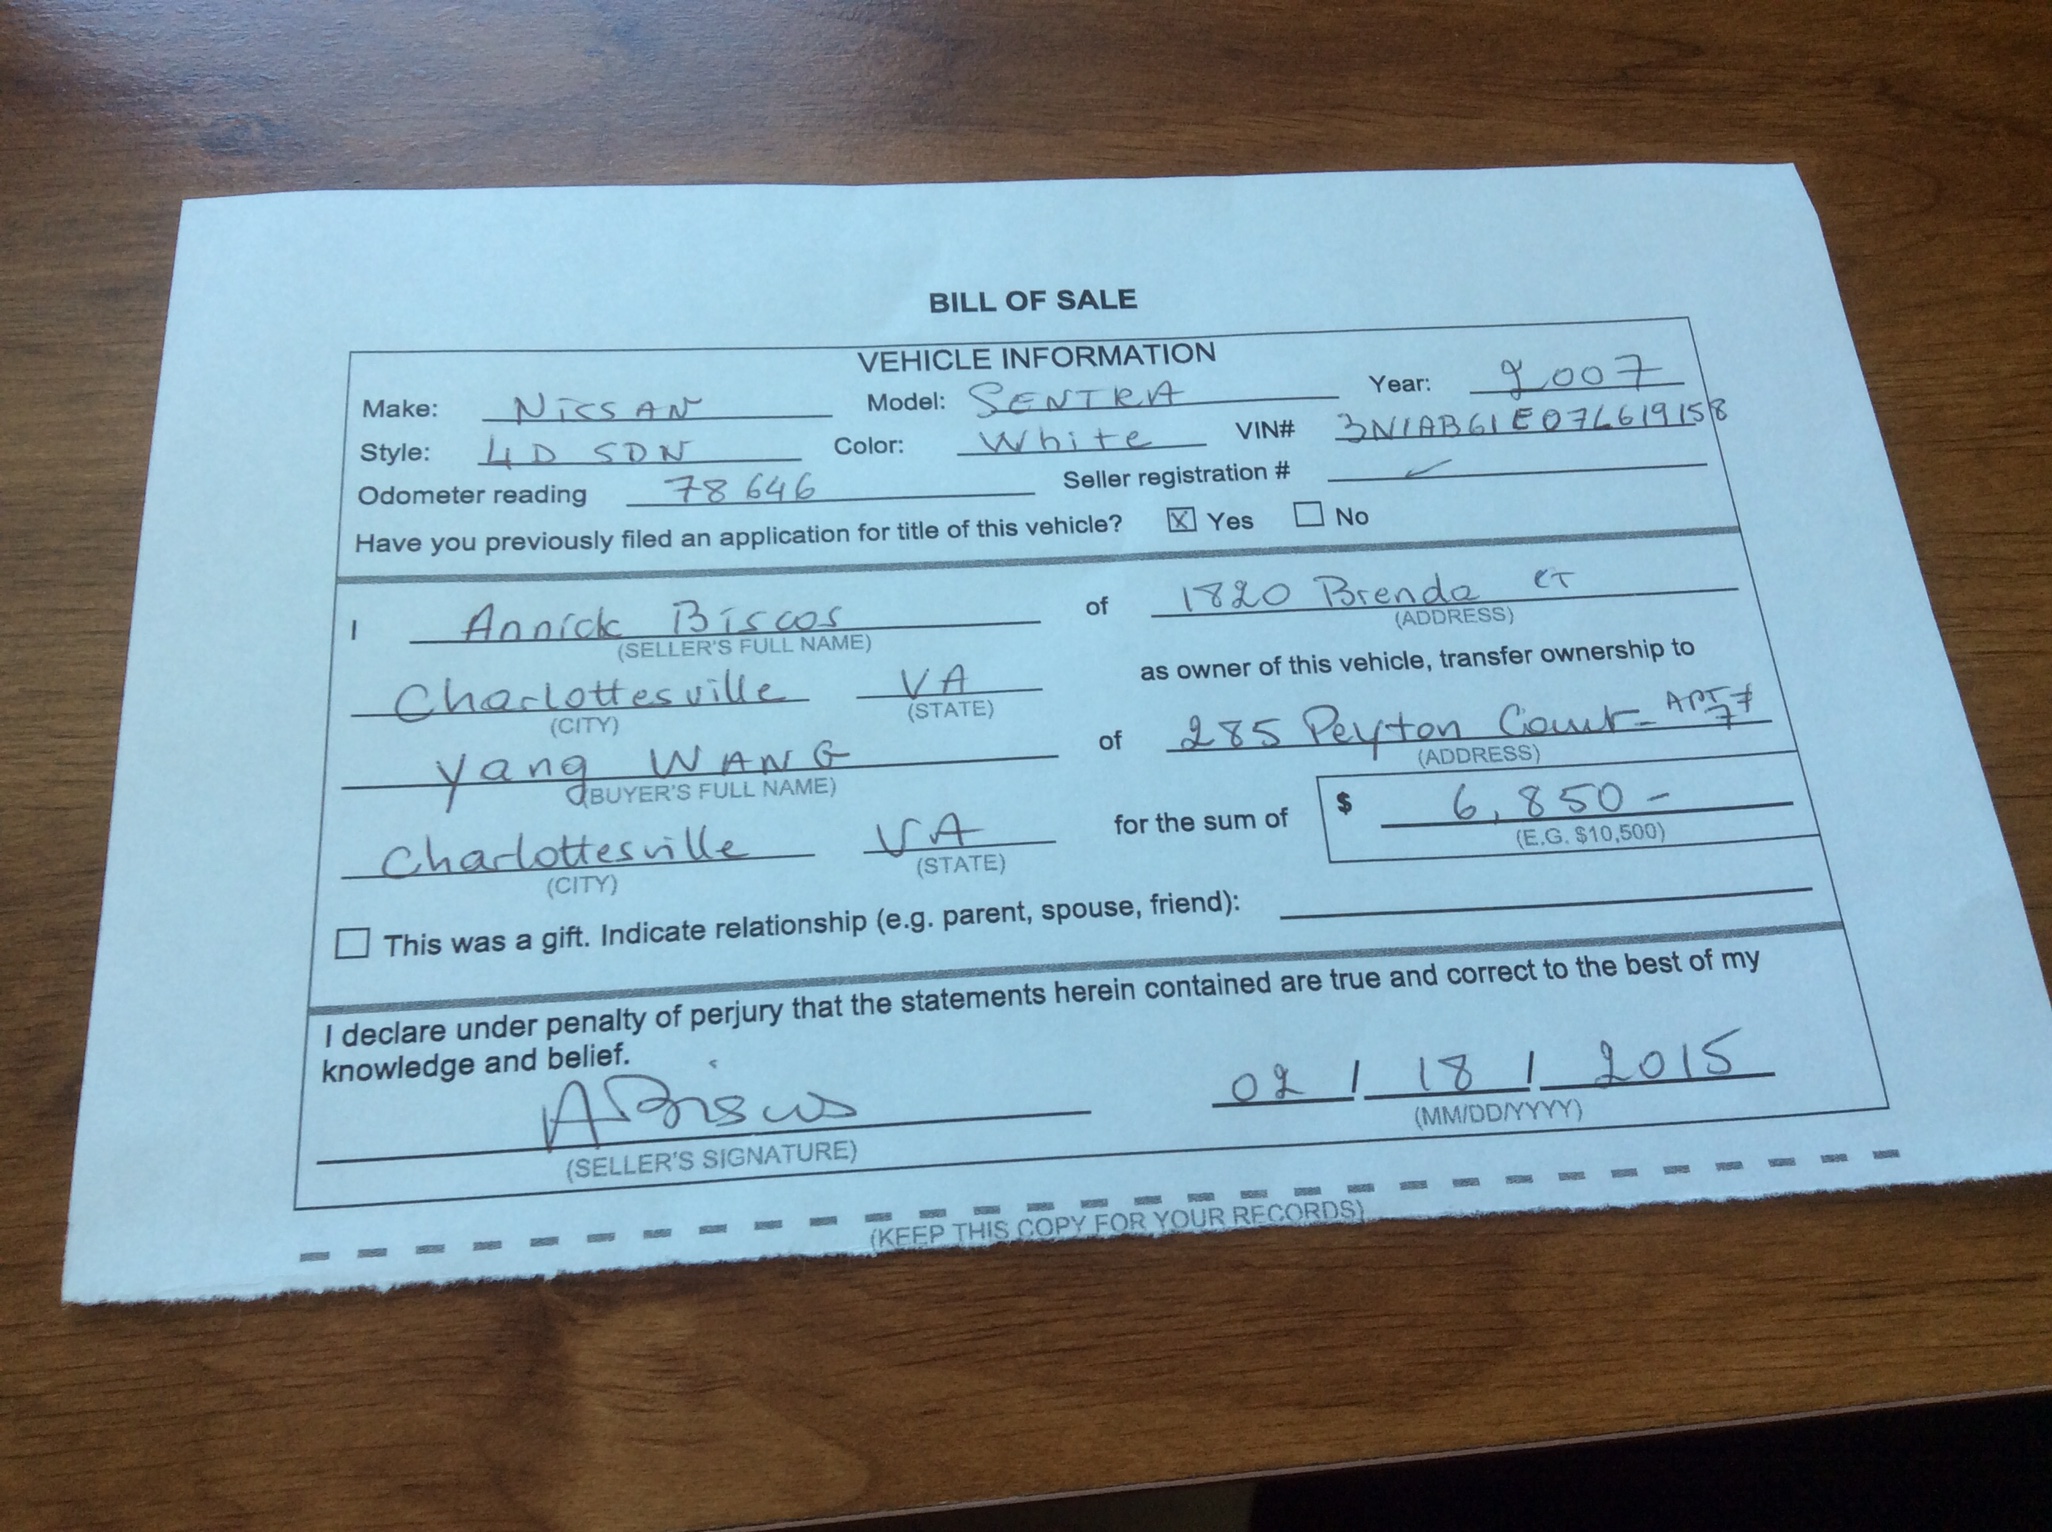 BILL OF SALE
VEHICLE INFORMATION
Make: Nissan Model: SENTRA Year: 2007
Style: 4D SDN Color: White VIN# 3N1AB61E07L619158
Odometer reading 78646 Seller registration #
Have you previously filed an application for title of this vehicle? X Yes No
I Annick Biscos of 1820 Brenda CT
(SELLER'S FULL NAME) (ADDRESS)
Charlottesville VA as owner of this vehicle, transfer ownership to
(CITY) (STATE)
Yang WANG of 285 Peyton Court - APT # 7
(BUYER'S FULL NAME) (ADDRESS)
Charlottesville VA for the sum of $ 6,850 -
(CITY) (STATE) (E.G. $10,500)
This was a gift. Indicate relationship (e.g. parent, spouse, friend):
I declare under penalty of perjury that the statements herein contained are true and correct to the best of my
knowledge and belief.
ABiscos 02 / 18 / 2015
(SELLER'S SIGNATURE) (MM/DD/YYYY)
(KEEP THIS COPY FOR YOUR RECORDS)